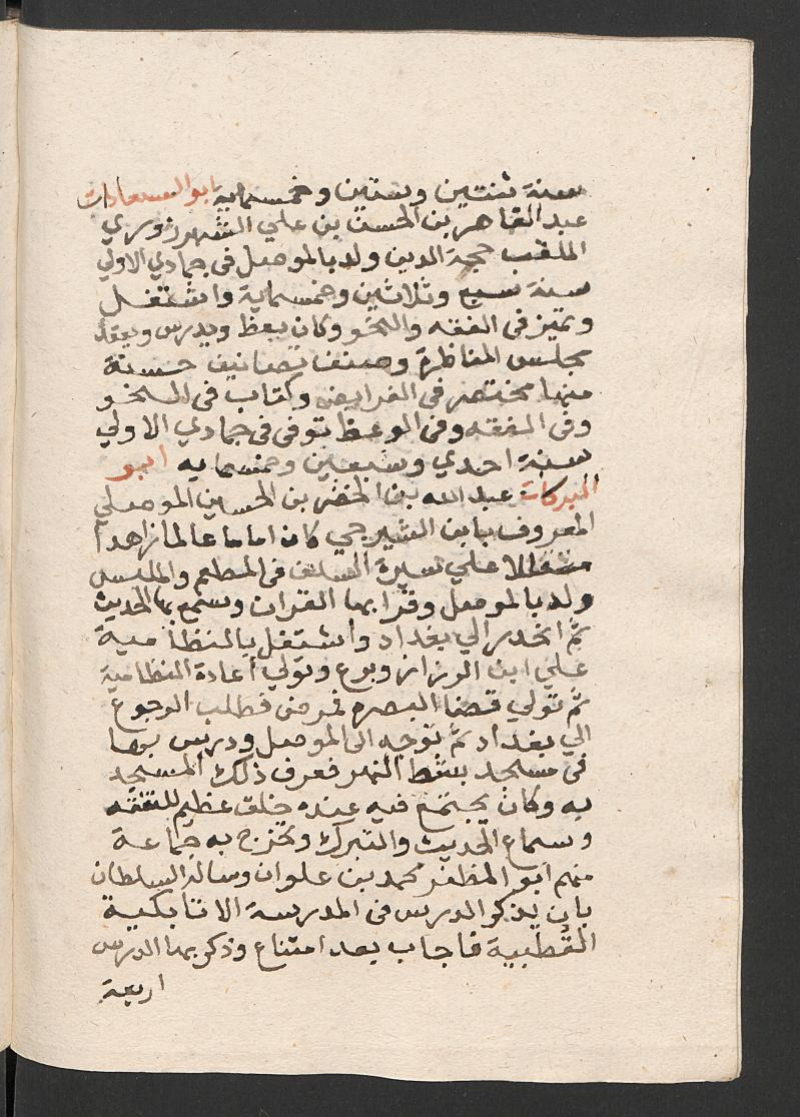 سنة ثنتين وستين وخمسماية ابو السعادات
عبد القاهر بن الحسن بن علي الشهرزوري
الملقب حجة الدين ولد بالموصل في جمادي الاولي
سنة سبع وثلاثين وخمسماية واشتغل
وتميز في الفقه والنحو وكان يعظ ويدرس ويعقد
مجلس المناظرة وصنف تصانيف حسنة
منها مختصر في الفرايض وكتاب في النحو
وفي الفقه وفي الوعظ توفي في جمادي الاولي
سنة احدي وسبعين وخمسمايه ابو
البركات عبد الله بن الخضر بن الحسين الموصلي
المعروف بابن الشيرجي كان اماما عالما زاهدا
متقللا علي سيرة السلف في المطعم والملبس
ولد بالموصل وقرا بها القران وسمع بها الحديث
ثم انحدر الي بغداد واشتغل بالنظامية
علي ابن الرزاز وبرع وتولي اعادة النظامية
ثم تولي قضا البصره فمرض فطلب الرجوع
الي بغداد ثم توجه الى الموصل ودرس بها
في مسجد بشط النهر فعرف ذلك المسجد
به وكان يجتمع فيه عنده خلق عظيم للتفقه
وسماع الحديث والتبرك وتخرج به جماعة
منهم ابو المظفر محمد بن علوان وساله السلطان
بان يذكر الدرس في المدرسة الاتابكية
القطبية فاجاب بعد امتناع وذكر بها الدرس
اربعة